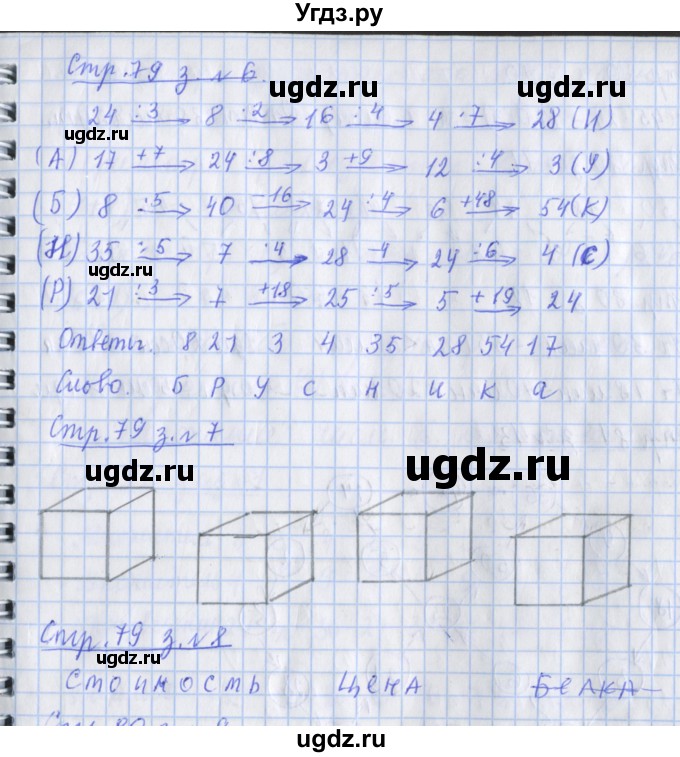 Угдз.ру
Стр.79 з.№6.
ugdz.ru ugdz.ru
24 :3→ 8 ·2→ 16 :4→ 4 ·7→ 28 (И)
ugdz.ru
(А) 17 +7→ 24 :8→ 3 +9→ 12 :4→ 3 (У)
(Б) 8 ·5→ 40 -16→ 24 :4→ 6 +48→ 54 (К)
(Н) 35 :5→ 7 ·4→ 28 -4→ 24 :6→ 4 (С)
ugdz.ru
(Р) 21 :3→ 7 +18→ 25 :5→ 5 +19→ 24
Ответы. 8 21 3 4 35 28 54 17
Слово. Б Р У С Н И К А
Стр.79 з.№7
ugdz.ru ugdz.ru
Стр.79 з.№8
ugdz.ru
Стоимость Цена Белка
ugdz.ru